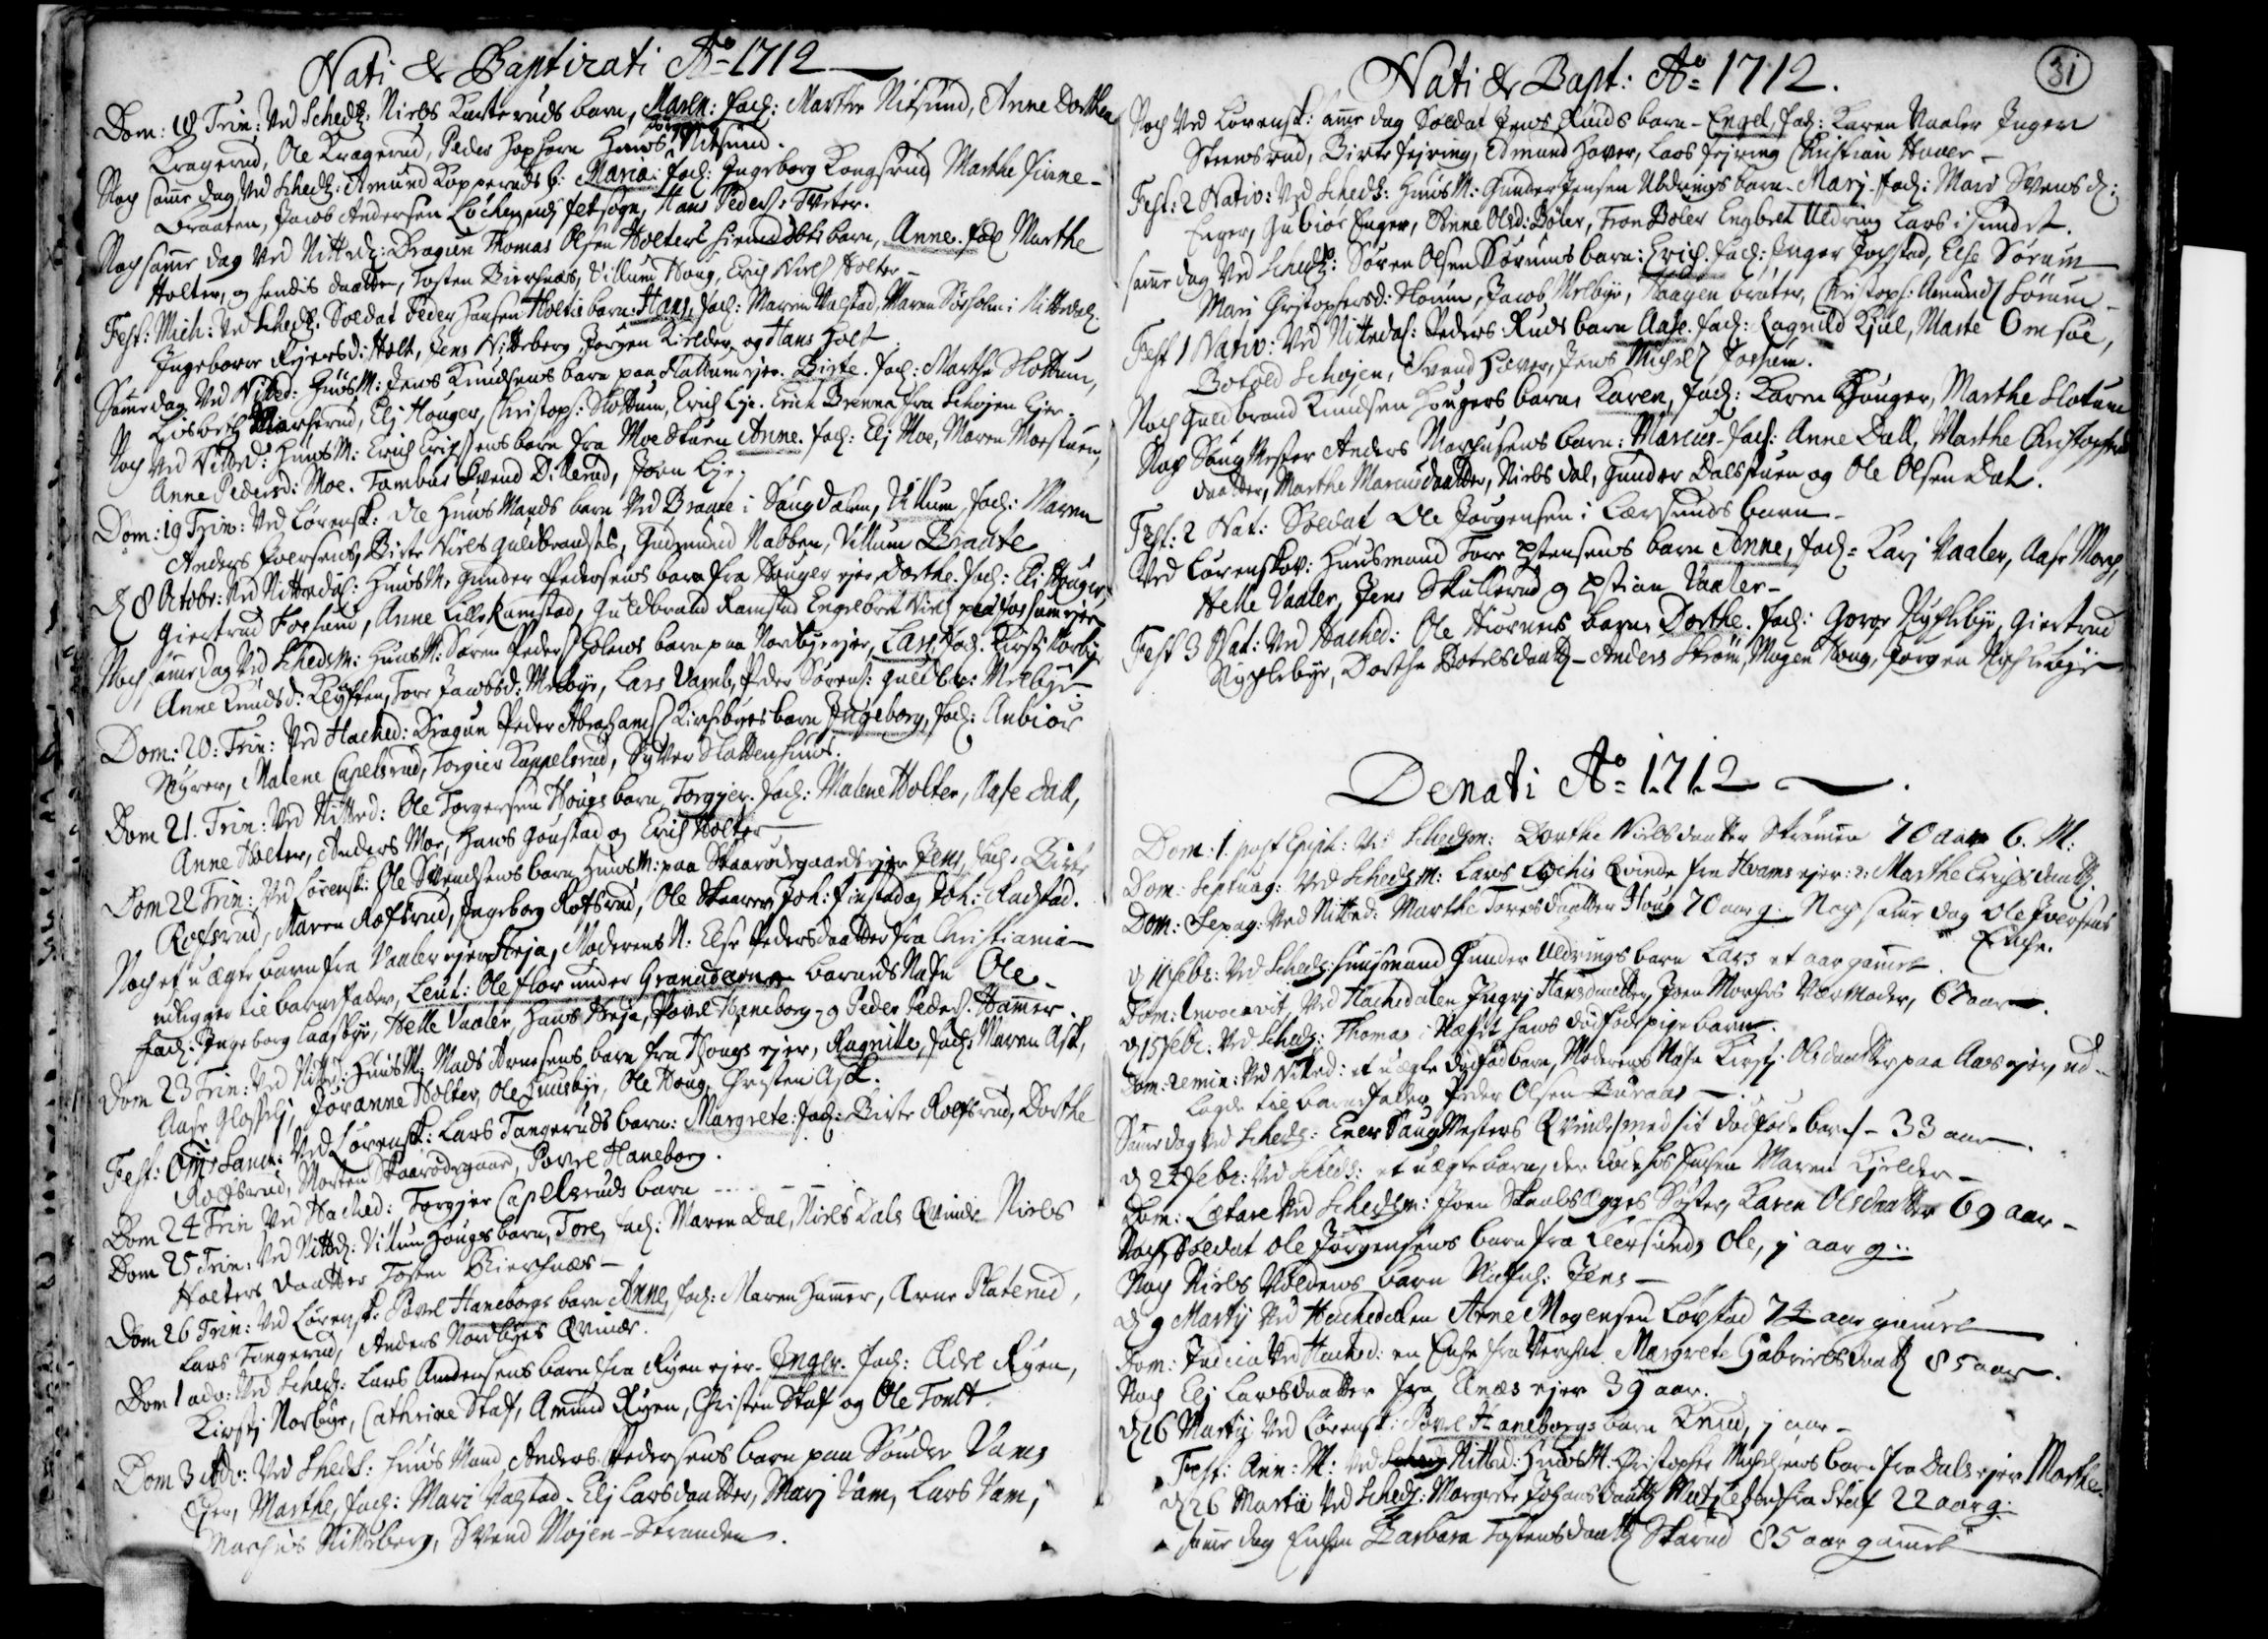 Nati & Baptizati Aō 1712
Dom: 18 Trin: Ved Schedz: Niels Karteruds barn, Maren: fad: Marthe Nitsund, Anne Dorthe
Kragerud, Ole Kragerud, Peder Hans Nitsund.
Noch samme dag Ved Schedz: Amund Kopperuds b: Maria: fad: Ingeborg Kongsrud, Marthe Finne-
Braaten, Jacob Andersen Hans Peders: Tveter.
Noch samme dag Ved Nitted: Dragun Thomas Olsen Holters barn, Anne. fad: Marthe
Holter, og hendis daatter, Tosten Bierchnæs, Villum Houg, Erich Niels: Holter-
Fest: Mich: Ved Schedz: Soldat Peder Hansen Holtes barn: Hans, fad: Maren Valstad, Maren i Nittedal.
Ingeborre Holt, Jens Nitteberg Jørgen Kielder og Hans Holt
Samme dag Ved Nitted: HuusM: Jens Knudsens barn paa Slattum ejer. Birte. fad: Marthe Slattum,
Lisbeth Elj Houger, Christoph: Slattum, Erich Lje. Erich Brenna fra Schøjen Ejer.
Noch Ved Nitted: HuusM: Erich Erichsens barn fra Moe Stuen Anne. fad: Elj Moe, Maren Moestuen,
Anne Pedersd: Moe. Tambur Svend Dillerud, Joen Lje.
Dom: 19 Trin: Ved Lørensk: Ole HuusMands barn Ved Braate i Saugdalen, Villum, fad: Maren
Anders Iversens, Birte Niels Guldbrandsøs, Gudmund Nabben, Villum Braate
d 8 Octobr: Ved Nittedal: HuusM: Gunder Pedersens barn fra Houger ejer Dorthe. fad: Eli Houger,
Giertrud Fossum, Anne Lille Ramstad, Guldbrand Ramstad Engebret Niels: paa Fossum ejer
Noch samme dag Ved Schedsm: HuusM: Søren Peders: Holens barn paa Norbye ejer, Lars, fad: Kirsti Norbye
Anne Knudsd: Kløfften, Tore Jacobsd: Melbye, Lars Vamb, Peder Sørens: Guldbr: Melbye-
Dom: 20: Trin: Ved Hached: Dragun Peder Abrahams: Kirchebyes barn Ingeborg, fad: Anbior
Myrer, Malene Capelsrud, Torgier Kappelsrud, Syver Slattenhuus.
Dom 21. Trin: Ved Nitted: Ole Torgersen Hougs barn, Torgjer. fad: Malene Holter, Aase Dall,
Anne Holter, Anders Moe, Hans Goustad og Erich Holter
Dom 22 Trin: Ved Lørensk: Ole Svendsens barn, HuusM: paa Skaarsdegaards ejer Jens, fad: Birte
Rofsrud, Maren Rofsrud, Ingeborg Rofsrud, Ole Skaarer, Joh: Finstad, Joh: Radstad.
Noch et uægte barn fra Vaaler ejer Heja, Moderens N: Else Pedersdaatter fra Christiania-
udlegger til barnefader, Leut: Ole Flor under Granaderne barnds Nafn Ole-
fad: Ingeborg Laasbye, Helle Vaaler, Hans Heja, Povel Haneborg og Peder Peders: Hammer.
Dom 23 Trin: Ved Nitted: HuusM: Mads Arnesens barn fra Hougs ejer, Ragnille, fad: Maren Ask,
Aase Glosselj, Joranne Holter, Ole Huusbye, Ole Houg, Christen Ask.
Fest: Om: Sanct: Ved Lørensk: Lars Tangeruds barn: Margrete: fad: Birte Rolfsrud, Dorthe
Rolfsrud, Morten Skaarsdegaard, Povel Haneborg.
Dom 24 Trin Ved Hached: Torgjer Capelsruds barn - - - -
Dom 25 Trin: Ved Nitted: Villum Hougs barn, Tore, fad: Maren Dal, Niels Dals Qvinde Niels
Holters daatter Tosten Bierchnæs-
Dom 26 Trin: Ved Lørensk: Povel Haneborgs barn Anne, fad: Maren Hammer, Arne Platerud,
Lars Tangerud, Anders Nordbyes Qvinde.
Dom 1 adv: Ved Sched: Lars Amdersens barn fra Ryen ejer- Engler. fad: Adel Ryen,
Kirstj Norbye, Cathrine Staf, Amund Ryen, Christen Staf og Ole Tomt.
Dom 3 Adv: Ved Schedz: Huus Mand Anders Pedersens barn paa Søndre Vams
Ejer, Marthe, fad: Mari Valstad, Elj Larsdaatter, Marj Vam, Lars Vam,
Marchus Nitteberg, Svend Mojen-Stranden.
31
Nati & Bapt: Aō 1712.
Noch Ved Lørensk: samme dag Soldat Jens Ruuds barn- Engel, fad: Karen Vaaler Inger
Steensrud, Birte Fejring, Edmund Haver, Lars Fejring Christian Haver-
Fest: 2 Nativ: Ved Schedz: HuusM: Gunder Jensen Uldrings barn- Marj. fad: Mari Svensd:
Enger, Gubiør Enger, Anne Olsd: Bøler, Tron Bøler Engbret Uldring Lars i Sundet.
samme dag Ved Schedz: Søren Olsen Sørums barn: Erich. fad: Inger Jochstad, Else Sørum
Mari Christophersd: Jacob Melbye, Haagen Bråter, Christoph: Amunds: Sørum-
Fest 1 Nativ: Ved Nittedal: Peders Ruds barn Aase. fad: Ragnild Kjul, Marte
Botold Schøjen, Svend Hæver, Jens Michels: Fossum.
Noch Guldbrand Knudsen Hougers barn, Karen, fad: Karen Houger, Marthe Slatum
Noch SaugMester Anders Marchusens barn: Marcus- fad: Anne Dall, Marthe Christophers
daatter, Marthe Marcusdaatter, Niels Dal, Gunder Dalstuen og Ole Olsen Dal.
Fest: 2 Nat: Soldat Ole Jørgensen i Lersunds barn-
Ved Lørenskov: Huusmand Tore barn Anne, fad: Karj Vaaler, Aase
Helle Vaaler, Jens Skullerud og Vaaler-
Fest 3 Nat: Ved Hached: Ole barn Dorthe. fad: Nychlebye, Giertrud
Nychlebye, Dorthe Botelsdaatt- Anders Strøm, Mogen Houg, Jørgen Nychlebye
Denati Aō 1712
Dom: 1. post Epiph: Ved Schedsm: Dorthe Nielsdaatter Strømmen 70 aar 6. M:
Dom: Septuag: Ved Schedsm: Lars Qvinde fra Hvams ejer: Marthe Erichsdaatt.
Dom: Sexag: Ved Nitted: Marthe Toresdaatter Houg 70 aar g: Noch samme dag Ole Iversens
Enche.
d 11 Febr: Ved Schedz: Huusmand Gunder Uldrings barn Lars et aar gammel
Dom: Invocavit Ved Hachedalen Ingrj Hansdaatter, Joen Morchs Vær Moder, 67 aar.
d 15 Febr: Ved Schedz: Thomas hans dødfød pigebarn.
Dom: Remin: Ved Nitted: et uægte dødfød barn, Moderens Nafn Kirstj Olsdaatter paa Aas ejer, ud-
lagde til barnefader Peder Olsen Buraas
Samme dag Ved Schedz: Ener SaugMesters Qvinde med sit dødføde barn- 33 aar
d 24 Febr: Ved Schedz: et uægte barn, der døde hos Enchen Maren Kjelder-
Dom: Lætare Ved Schedsm: Joen Søster, Karen Olsdaatter 69 aar-
Noch Soldat Ole Jørgensens barn fra Leersund, Ole, j aar g:
Noch Niels barn Jens-
d 9 Martij Ved Hachedalen Arne Mogensen Løvstad 74 aar gammel
Dom: Judica Ved Hached: en Enche fra Margrete Gabrielsdaatt 85 aar.
Noch Elj Larsdaatter fra Elnæs ejer 39 aar.
d 26 Martij Ved Lørensk: Povel Haneborgs barn Knud, j aar-
Fest: Ann: M: Ved Nitted: HuusM. Christopher Michelsens barn fra Dals ejer Marthe
d 26 Martii Ved Schedz: Margrete Johansdaatt fra Staf 22 aar g:
samme dag Enchen Barbara Tostensdaatt Skarud 85 aar gammel